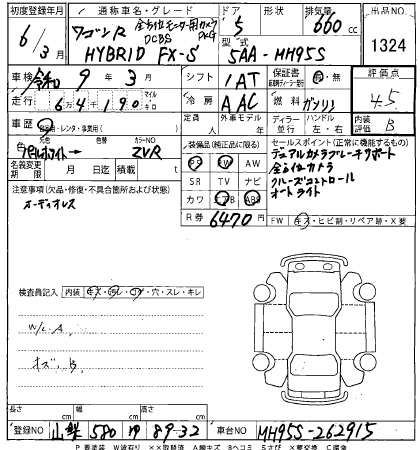 初度登録年月 通称車名・グレード ドア 形状 排気量 出品NO
6/3月 ワゴンR 全方位モニター用カメラ DCBS PKG 5 660cc 1324
HYBRID FX-S 型式 5AA-MH95S
車検 令和9年3月 シフト IAT 保証書 有・無 評価点
走行 64190 マイル キロ 冷房 AAC 燃料 ガソリン 4.5
車歴 自家用・レンタ・事業用( ) 定員 人 外車モデル 年 ディーラー 並行 ハンドル 左・右 内装評価 B
元色 色替 カラーNO 装備品(純正品に限る) セールスポイント(正常に機能するもの)
ホワイト ZVR PS PW AW デュアルカメラブレーキサポート
名義変更期限 月 日迄 積載量 t SR TV ナビ 全方位カメラ
注意事項(欠品・修復・不具合箇所および状態) カワ エアB ABS クルーズコントロール
オーディオレス オートライト
R券 6470円 FW キズ・ヒビ割・リペア跡・X要
検査員記入 内装 キズ・汚レ・コゲ・穴・スレ・キレ
W/C.A
キズ.B
長さ cm 幅 cm 高さ cm
登録NO 山梨 580 ゆ 89-32 車台NO MH95S-262915
P要塗装 W波有り XX取替済 A線キズ Bヘコミ Sさび X要交換 C腐食